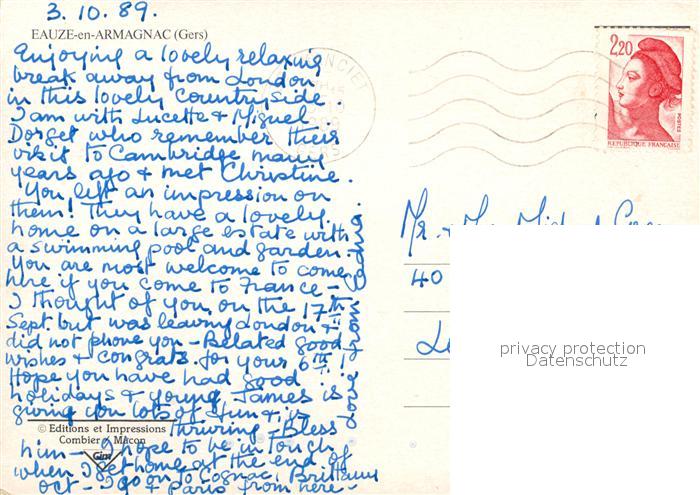 3.10.89.
EAUZE-en-ARMAGNAC (Gers)
Enjoying a lovely relaxing
break away from London
in this lovely countryside.
I am with Lucette & Miguel
Dorget who remember their
visit to Cambridge many
years ago & met Christine.
You left an impression on
them! They have a lovely
home on a large estate with
a swimming pool and garden.
You are most welcome to come
here if you come to France -
I thought of you, on the 17th
Sept. but was leaving London &
did not phone you - Belated good
wishes & congrats. for your 6th!
Hope you have had good
holidays & young James is
giving you lots of fun & is
thriving - Bless
him - I hope to be in touch
when I get home at the end of
Oct - I go on to Cognac, Brittany
& Paris from here -
Love from
© Editions et Impressions
Combier Macon
Cim
2,20
POSTES
REPUBLIQUE FRANÇAISE
Mr. &
40
privacy protection
Datenschutz